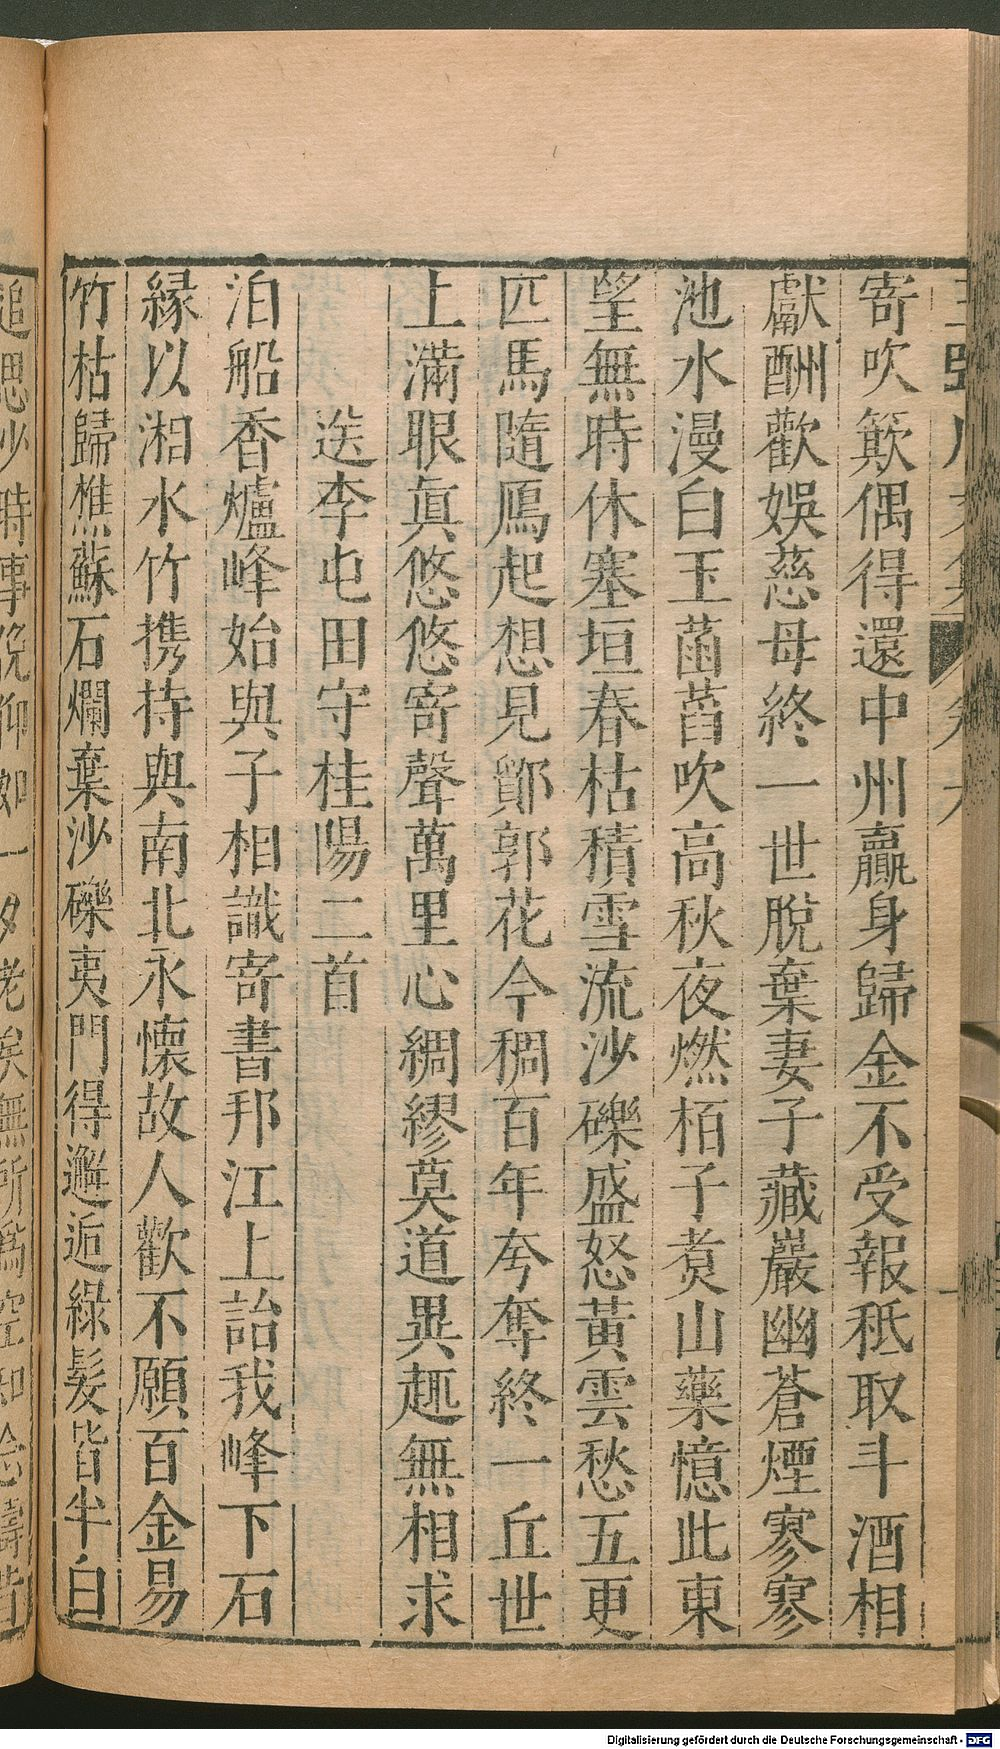 寄吹簱偶得還中州贏身歸金不受報秪取斗酒相
獻酬歡娛慈母終一世脫棄妻子藏巖幽蒼煙寥寥
池水漫白玉菡萏吹高秋夜燃栢子煑山藥憶此東
望無時休塞垣春枯積雪流沙礫盛怒黃雲愁五更
匹馬隨鴈起想見鄮郭花今稠百年夸奪終一丘世
上滿眼眞悠悠寄聲萬里心綢繆莫道異趣無相求
送李屯田守桂陽二首
泊船香爐峰始與子相識寄書邗江上詒我峰下石
縁以湘水竹携持與南北永懷故人歡不願百金易
竹枯歸樵蘇石爛棄沙礫夷門得邂逅綠髮皆半白
追思少時事俛仰如一夕老矣無所爲空知念疇昔
Digitalisierung gefördert durch die Deutsche Forschungsgemeinschaft - DFG